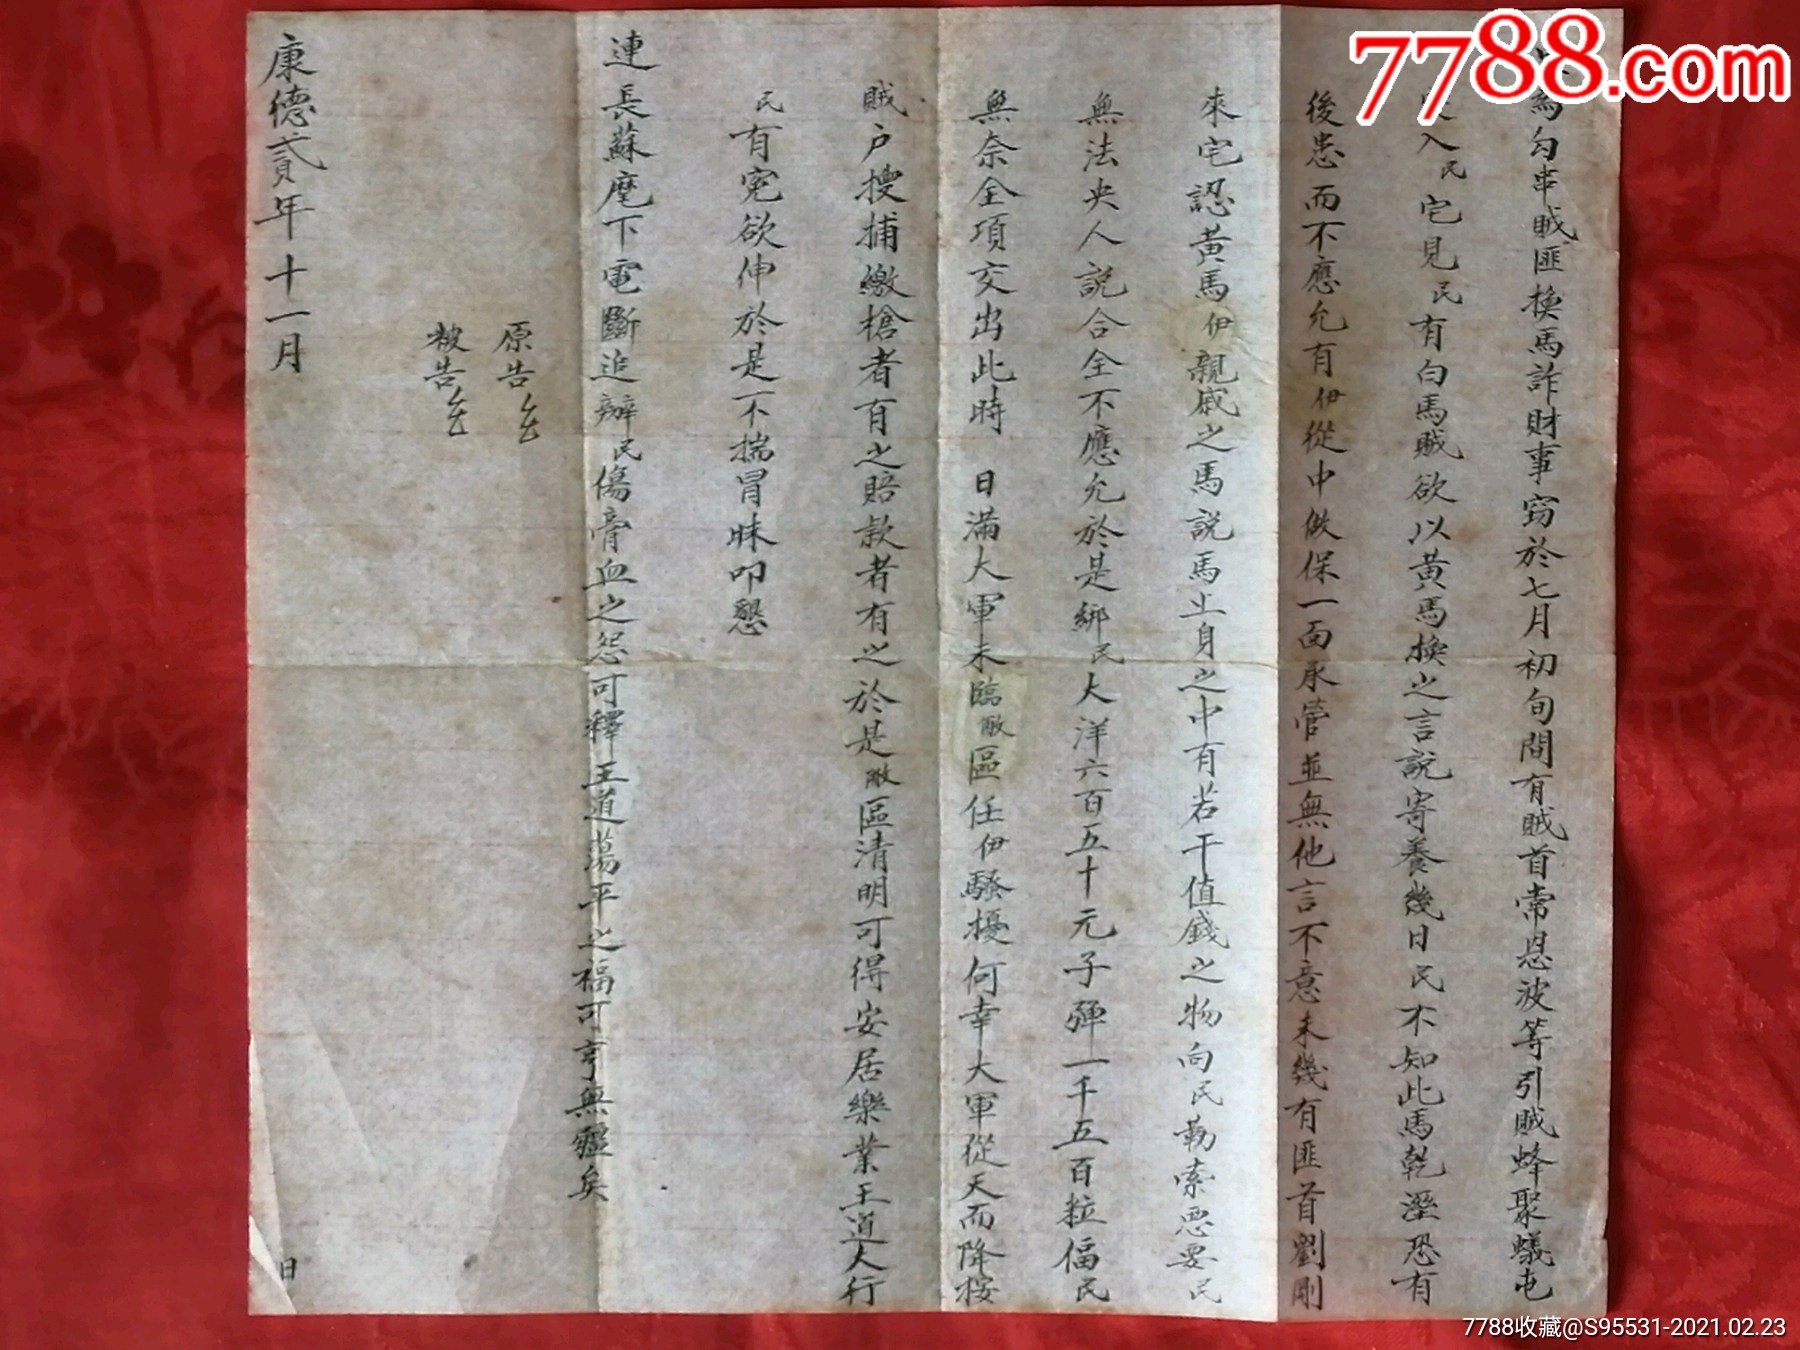 7788.com
為勾串賊匪換馬詐財事窃於七月初旬間有賊首常恩波等引賊蜂聚蟻屯
入民宅見民有白馬賊欲以黃馬換之言說寄養幾日民不知此馬乾溼恐有
後患而不應允有伊從中做保一面承管並無他言不意未幾有匪首劉剛
來宅認黃馬伊親戚之馬說馬上身之中有若干值錢之物向民勒索惡要民
無法央人說合全不應允於是綁民大洋六百五十元子彈一千五百粒偪民
無奈全項交出此時 日滿大軍未臨敝區任伊騷擾何幸大軍從天而降按
賊户搜捕繳槍者有之賠款者有之於是敝區清明可得安居樂業王道大行
民有寃欲伸於是不揣冒昧叩懇
連長蘇麾下電斷追辦民傷膏血之怨可釋王道蕩平之福可享無疆矣
原告
被告
康德貳年十一月 日
7788收藏@S95531-2021.02.23